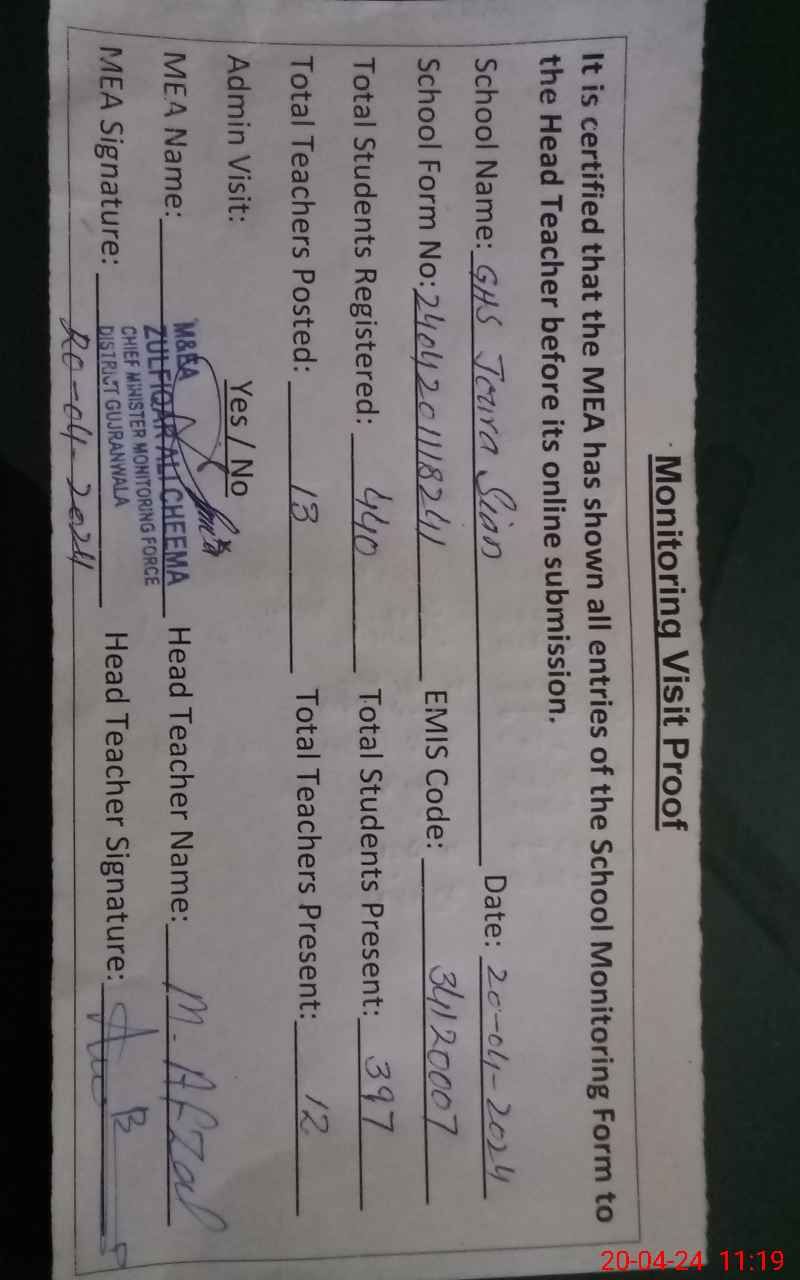 Monitoring Visit Proof
It is certified that the MEA has shown all entries of the School Monitoring Form to
the Head Teacher before its online submission.
School Name: GHS Joura Sian Date: 20-04-2024
School Form No: 2404201118241 EMIS Code: 34120007
Total Students Registered: 440 Total Students Present: 397
Total Teachers Posted: 13 Total Teachers Present: 12
Admin Visit: Yes / No
MEA Name: M&EA ZULFIQAR ALI CHEEMA Head Teacher Name: M. Afzal
CHIEF MINISTER MONITORING FORCE
DISTRICT GUJRANWALA
MEA Signature: Head Teacher Signature:
20-04-2024
20-04-24 11:19